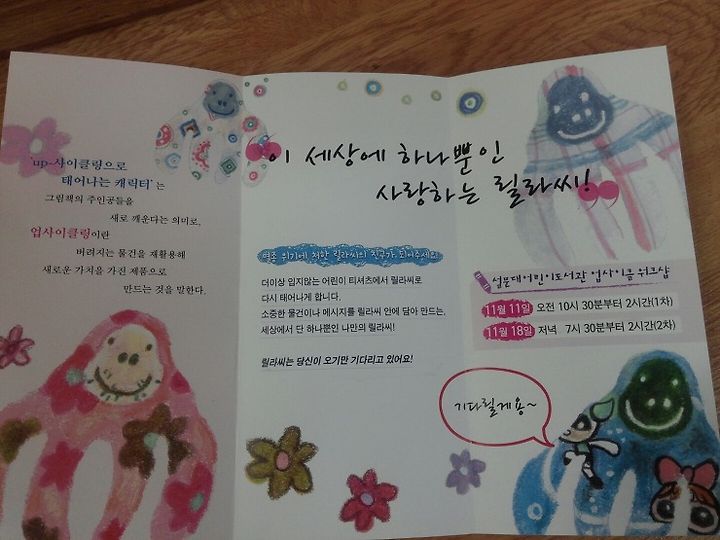 'up-사이클링으로
태어나는 캐릭터'는
그림책의 주인공들을
새로 깨운다는 의미로,
업사이클링이란
버려지는 물건을 재활용해
새로운 가치를 가진 제품으로
만드는 것을 말한다.
“이 세상에 하나뿐인
사랑하는 릴라씨!”
멸종 위기에 처한 릴라씨의 친구가 되어주세요
더이상 입지않는 어린이 티셔츠에서 릴라씨로
다시 태어나게 합니다.
소중한 물건이나 메시지를 릴라씨 안에 담아 만드는,
세상에서 단 하나뿐인 나만의 릴라씨!
릴라씨는 당신이 오기만 기다리고 있어요!
설문대어린이도서관 업사이클 워크샵
11월 11일 오전 10시 30분부터 2시간(1차)
11월 18일 저녁 7시 30분부터 2시간(2차)
기다릴게용~